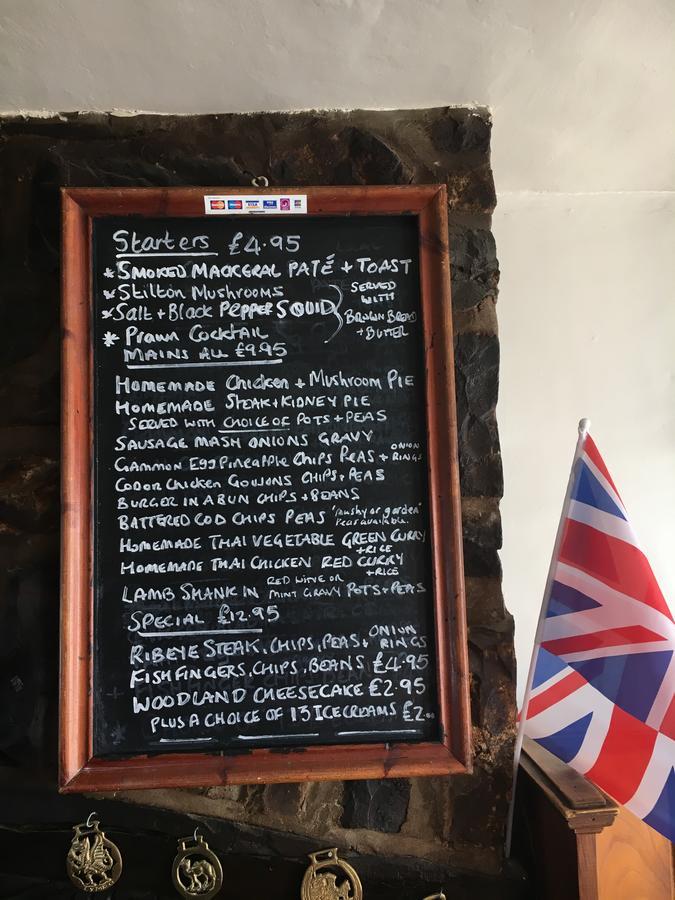 Starters £4.95
* SMOKED MACKERAL PATÉ + TOAST
* Stilton Mushrooms
* Salt + Black PEPPER SQUID
* Prawn Cocktail
SERVED
WITH
BROWN BREAD
+ BUTTER
MAINS ALL £9.95
HOMEMADE Chicken + Mushroom PIE
HOMEMADE STEAK + KIDNEY PIE
SERVED WITH CHOICE OF POTS + PEAS
SAUSAGE MASH ONIONS GRAVY
Gammon Egg Pineapple Chips Peas + ONION RINGS
Chicken Goujons CHIPS + PEAS
BURGER IN A BUN CHIPS + BEANS
BATTERED COD CHIPS PEAS 'mushy or garden'
Peas available.
HOMEMADE THAI VEGETABLE GREEN CURRY
+ RICE
HOMEMADE THAI CHICKEN RED CURRY
+ RICE
LAMB SHANK IN RED WINE OR MINT GRAVY POTS + PEAS
SPECIAL £12.95
RIBEYE STEAK, CHIPS, PEAS + ONION RINGS
FISH FINGERS, CHIPS, BEANS £4.95
WOODLAND CHEESECAKE £2.95
PLUS A CHOICE OF 13 ICE CREAMS £2.00